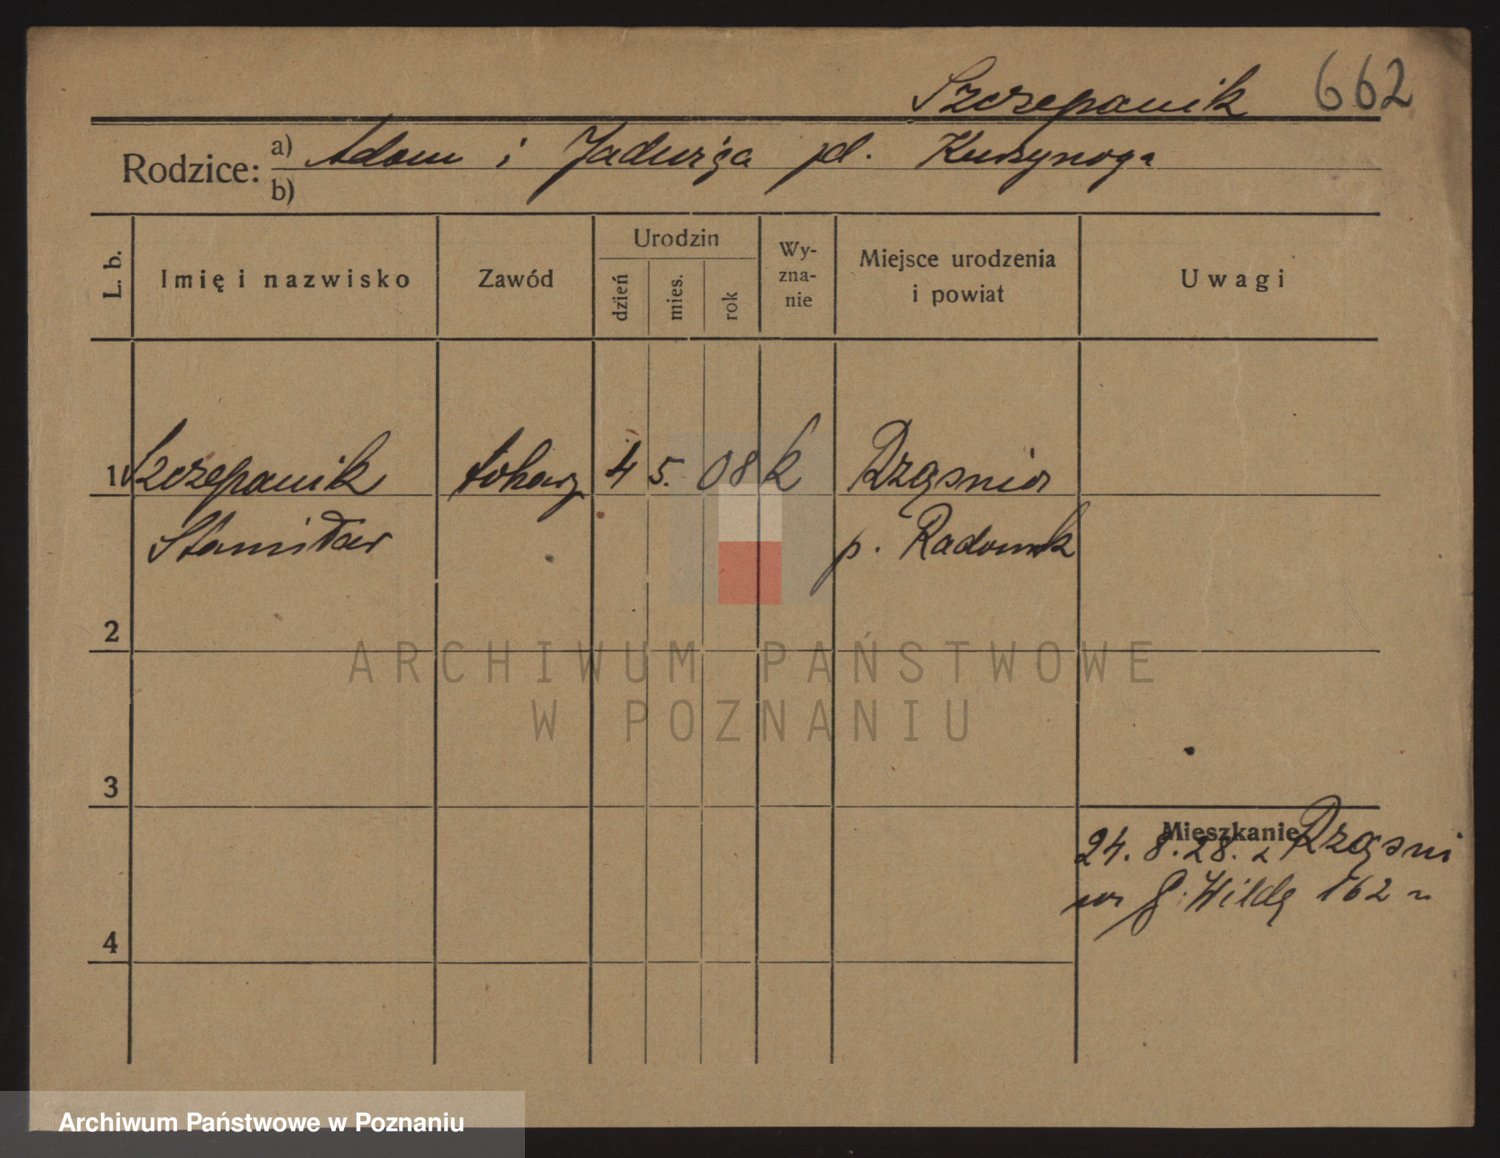 Szczepanik 662
Rodzice: a) Adam i Jadwiga pd.
b)
L. b. Imię i nazwisko Zawód Urodzin dzień mies. rok Wyznanie Miejsce urodzenia i powiat Uwagi
1 Szczepanik tokarz 4 5. 08 k Rząśnia
Stanisław p. Radomsk
2
ARCHIWUM PAŃSTWOWE
W POZNANIU
3
Mieszkanie
24. 8. 28. z Rząśni
G. Wildę 162
4
Archiwum Państwowe w Poznaniu